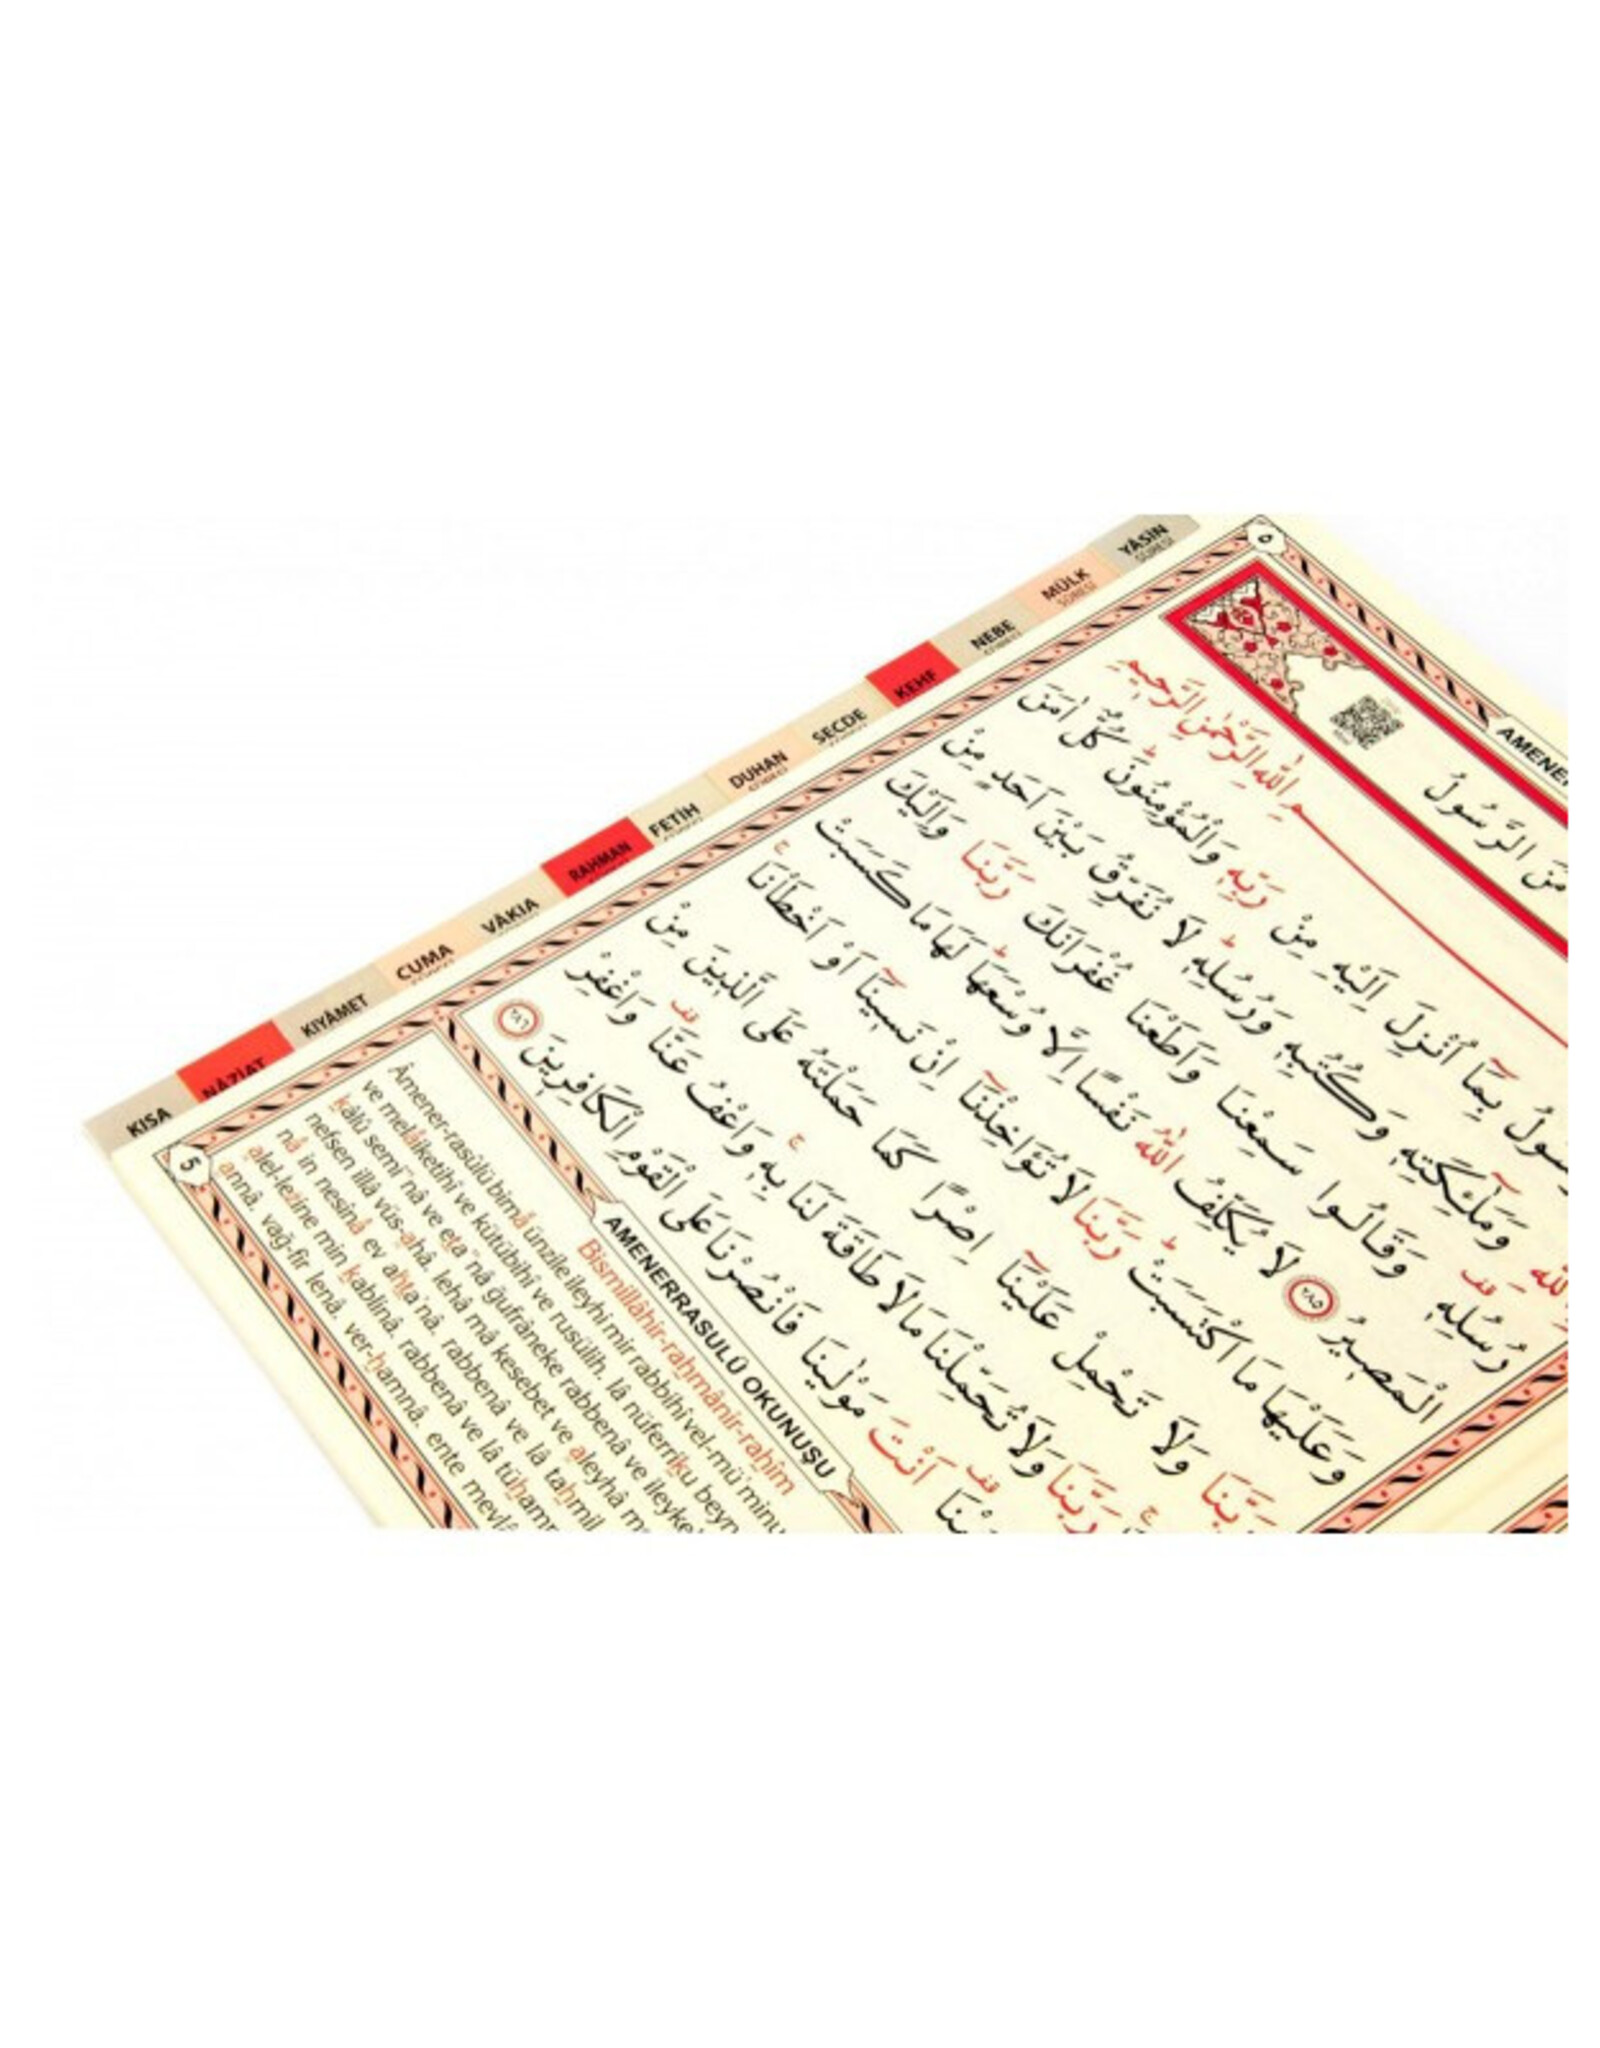 YÂSİN
SÛRESİ
MÜLK
SÛRESİ
NEBE
KEHF
SECDE
DUHAN
FETİH
RAHMAN
VÂKIA
CUMA
KIYÂMET
NÂZİAT
KISA
٥
الرَّسُولُ
اللّٰهِ الرَّحْمٰنِ الرَّحٖيمِ
بِمَٓا اُنْزِلَ اِلَيْهِ مِنْ رَبِّهٖ وَالْمُؤْمِنُونَۜ كُلٌّ اٰمَنَ
وَمَلٰٓئِكَتِهٖ وَكُتُبِهٖ وَرُسُلِهٖۜ لَا نُفَرِّقُ بَيْنَ اَحَدٍ مِنْ
رُسُلِهٖ وَقَالُوا سَمِعْنَا وَاَطَعْنَا غُفْرَانَكَ رَبَّنَا وَاِلَيْكَ
الْمَصٖيرُ ٢٨٥ لَا يُكَلِّفُ اللّٰهُ نَفْسًا اِلَّا وُسْعَهَاۜ لَهَا مَا كَسَبَتْ
وَعَلَيْهَا مَا اكْتَسَبَتْۜ رَبَّنَا لَا تُؤَاخِذْنَٓا اِنْ نَسٖينَٓا اَوْ اَخْطَأْنَاۚ
رَبَّنَا وَلَا تَحْمِلْ عَلَيْنَٓا اِصْرًا كَمَا حَمَلْتَهُ عَلَى الَّذٖينَ مِنْ
رَبَّنَا وَلَا تُحَمِّلْنَا مَا لَا طَاقَةَ لَنَا بِهٖۚ وَاعْفُ عَنَّا۠ وَاغْفِرْ
اَنْتَ مَوْلٰينَا فَانْصُرْنَا عَلَى الْقَوْمِ الْكَافِرٖينَ ٢٨٦
AMENERRASULÜ OKUNUŞU
Bismillâhir-rahmânir-rahîm
Âmener-rasûlü bimâ ünzile ileyhi mir rabbihî vel-mü'minu
ve melâiketihî ve kütübihî ve rusülih. lâ nüferriku beyn
kâlû semi'nâ ve eta'nâ ğufrâneke rabbenâ ve ileyke
nefsen illâ vüs-ahâ. lehâ mâ kesebet ve aleyhâ m
nâ in nesînâ ev ahta'nâ. rabbenâ ve lâ tahmil
alel-lezîne min kablinâ. rabbenâ ve lâ tüham
annâ. vağ-fir lenâ. ver-hamnâ. ente mevlâ
5